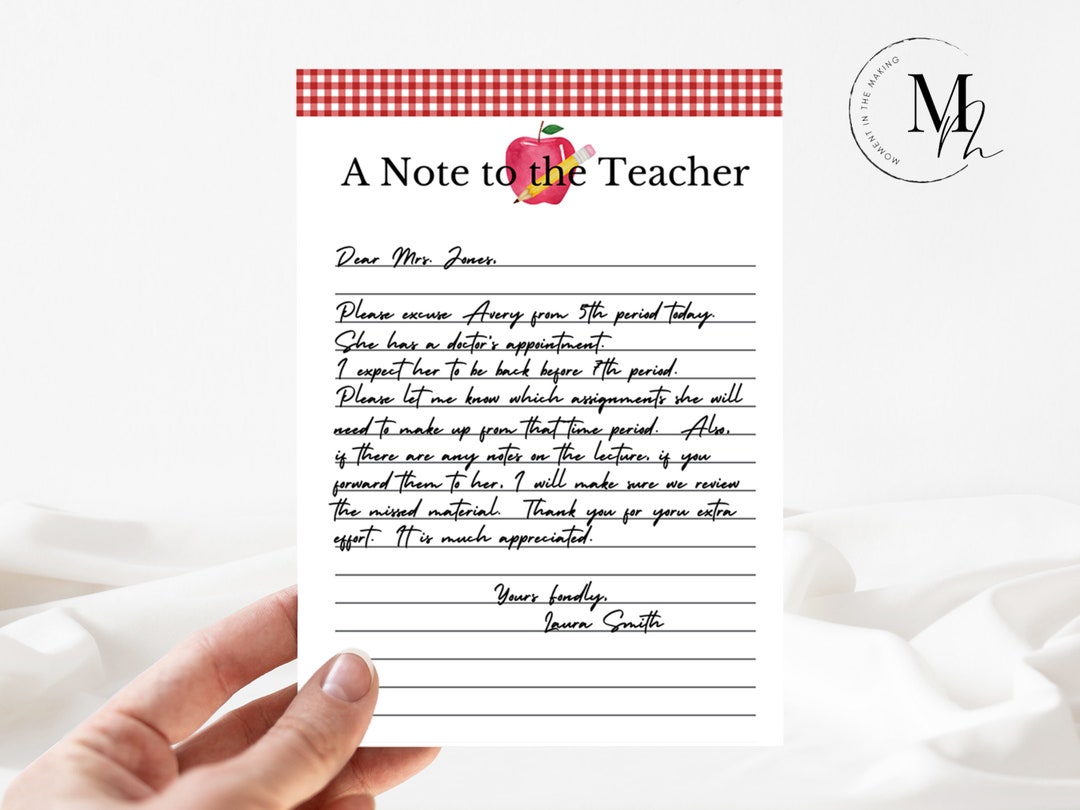 A Note to the Teacher
Dear Mrs. Jones,
Please excuse Avery from 5th period today.
She has a doctor's appointment.
I expect her to be back before 7th period.
Please let me know which assignments she will
need to make up from that time period. Also,
if there are any notes on the lecture, if you
forward them to her, I will make sure we review
the missed material. Thank you for yoru extra
effort. It is much appreciated.
Yours fondly,
Laura Smith
MOMENT IN THE MAKING